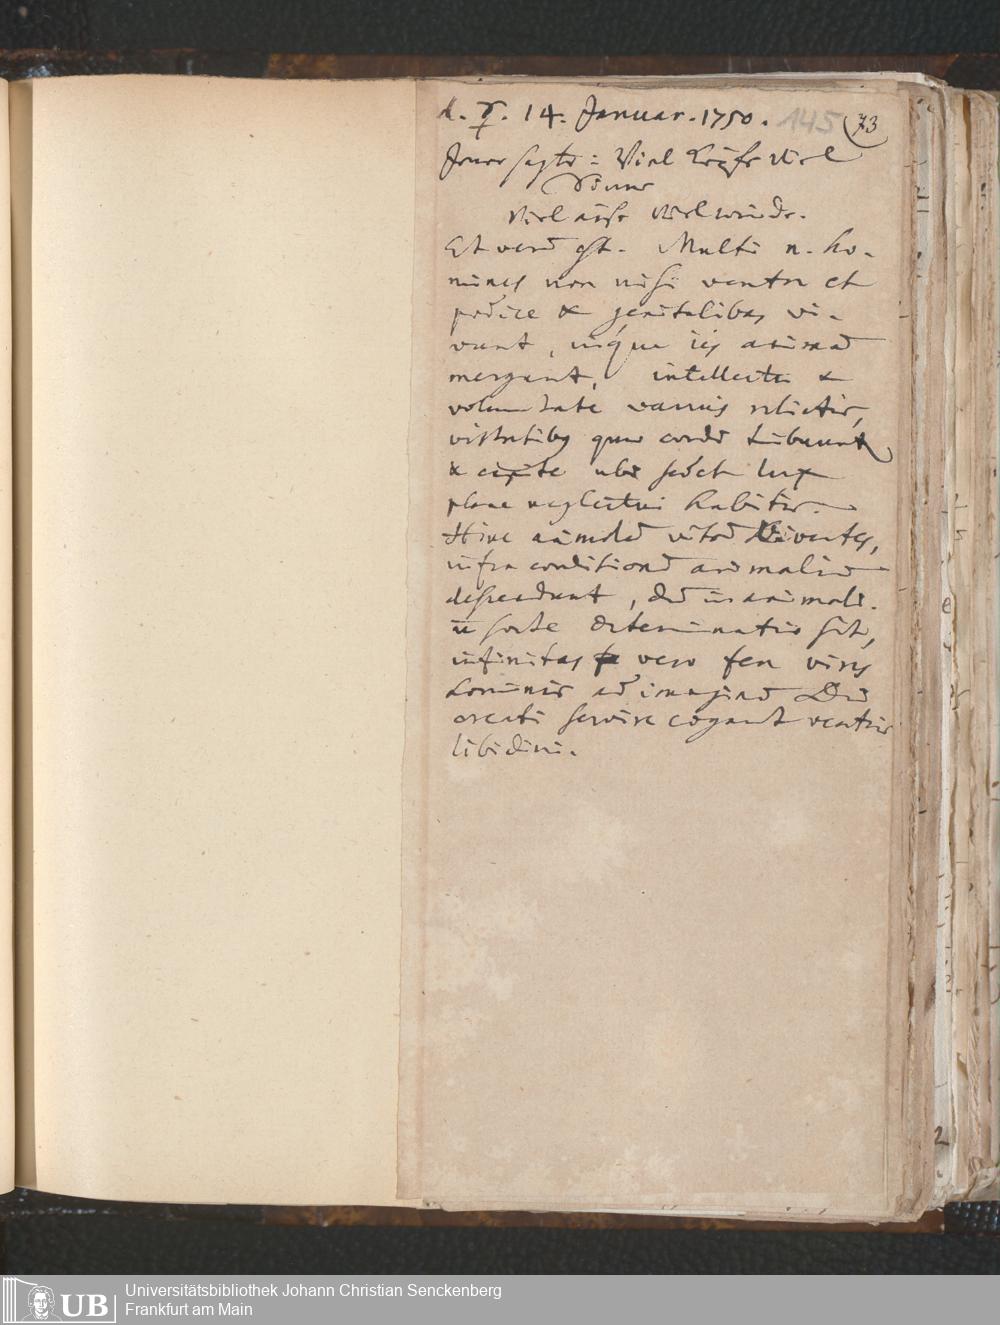 d. ☿. 14. Januar. 1750. 145 73
Jener sagte: Viel Köpfe viel
Sinne
viel ärße viel winde.
Et verū est. Multi n. ho-
mines non nisi ventri et
podice & genitalibus vi-
vunt, inque iis animā
mergunt, intellectu &
voluntate vanis relictis,
virtutibus quae cordi tribuunt
& capite ubi sedet lux
plane neglectui habitis.
Hinc animalē vitā viventes,
infra conditionē animaliū
descendunt, dū in animali-
sorte determinatus sit,
infinitas vero fere vires
hominis ad imaginē Dei
creati servire cogant ventris
libidini.
Universitätsbibliothek Johann Christian Senckenberg
Frankfurt am Main
UB